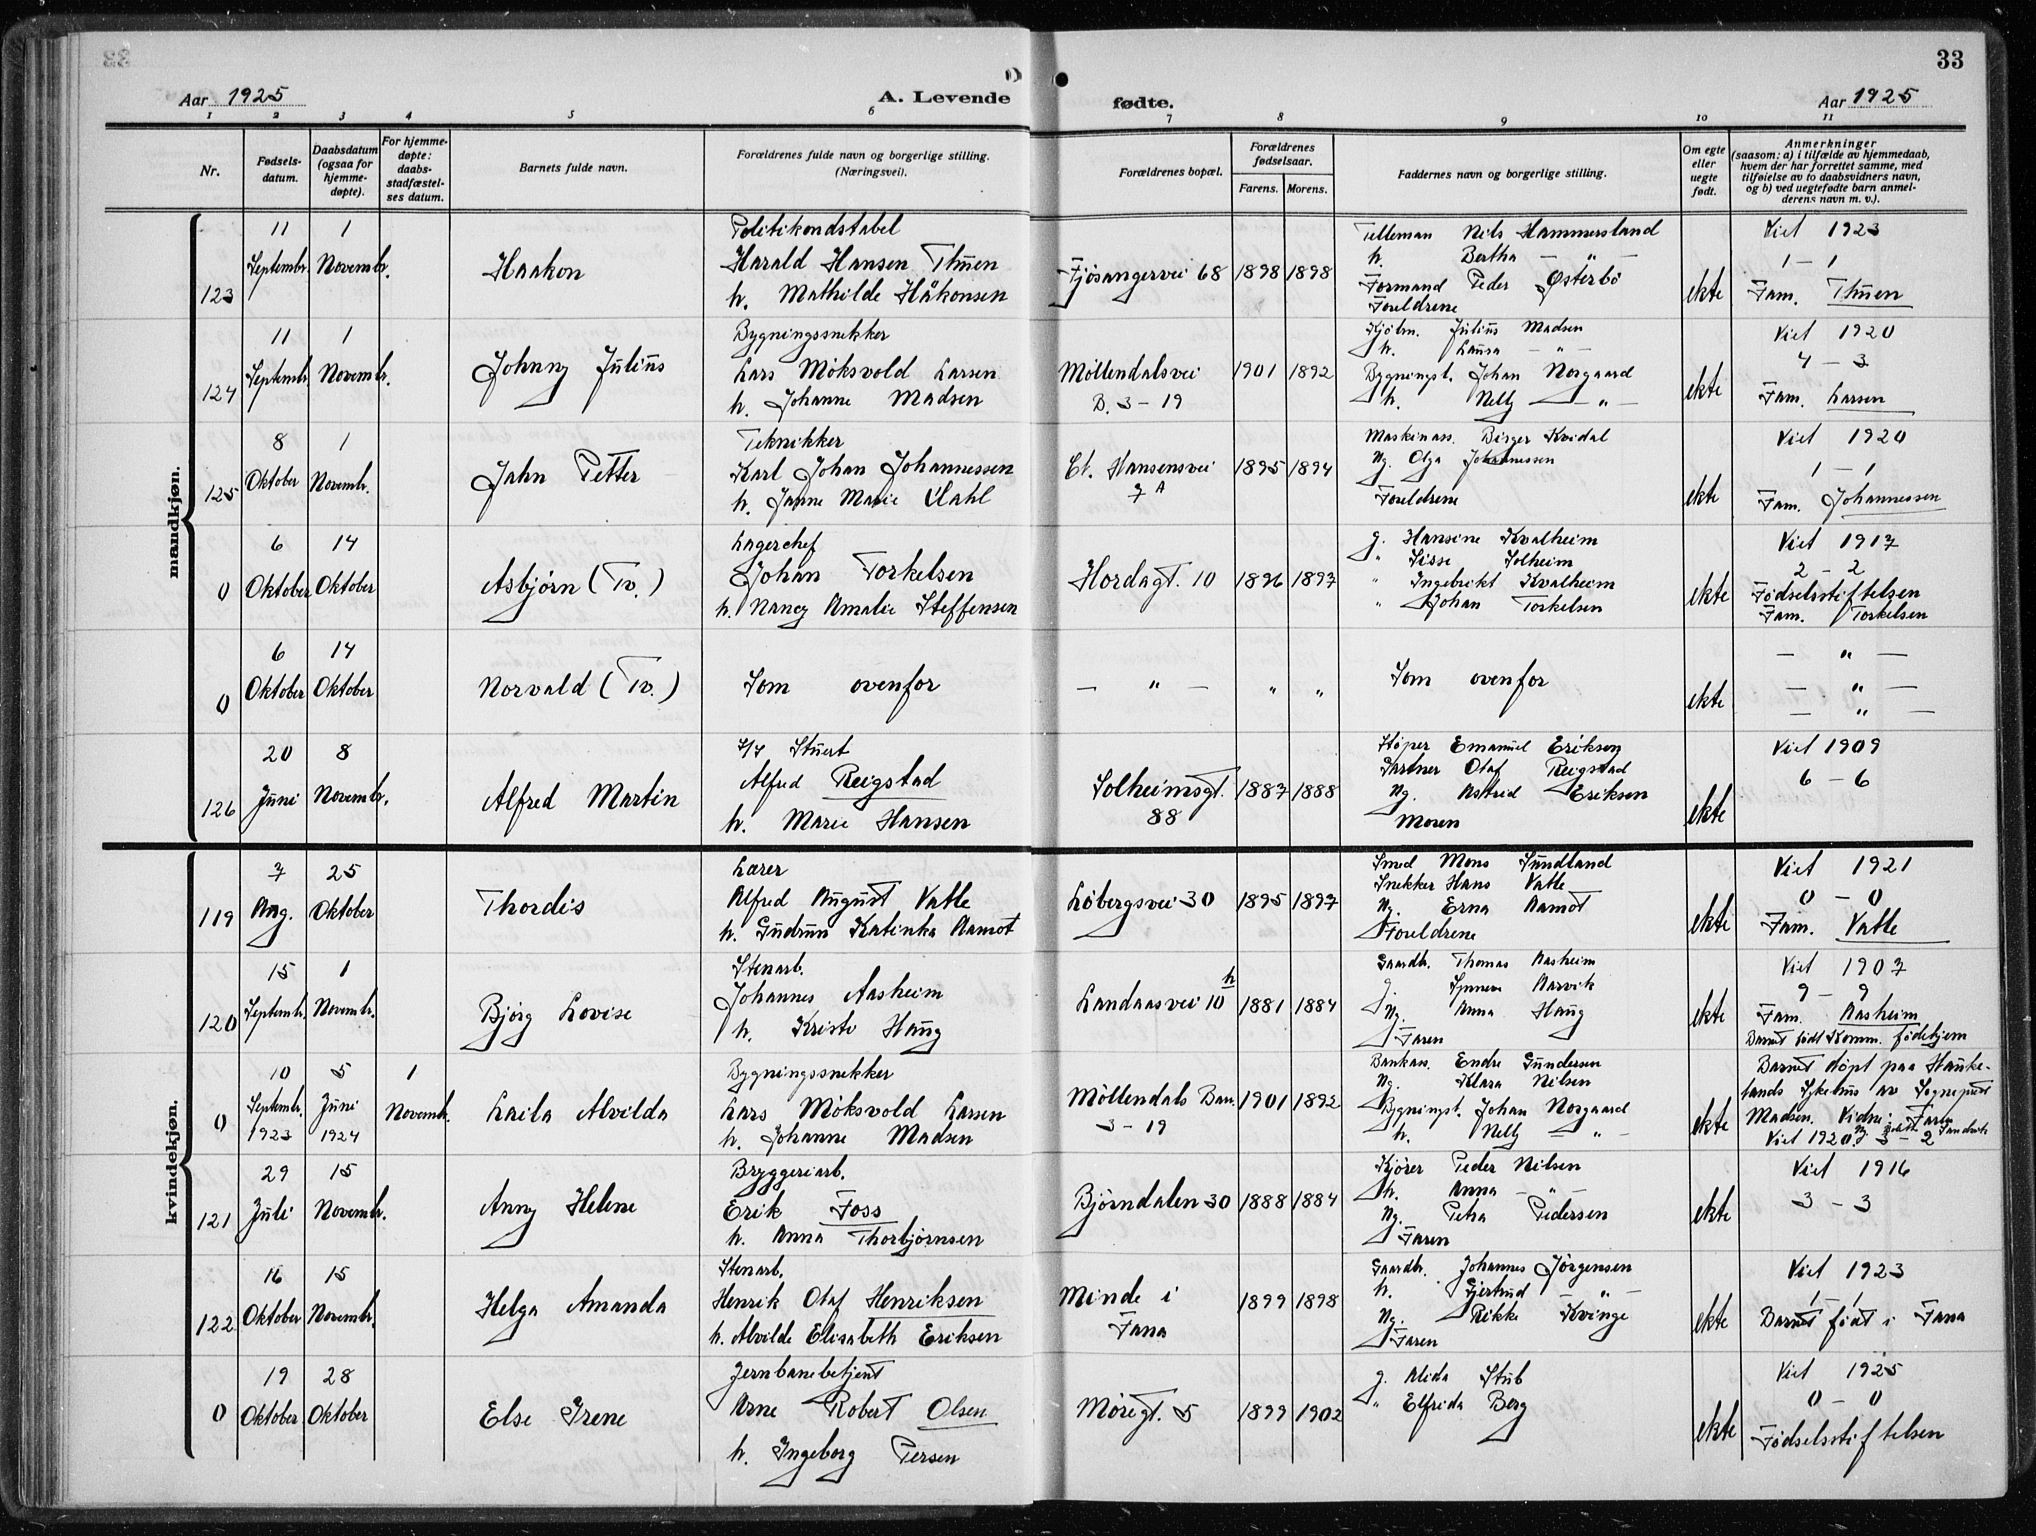 33
Aar 1925
A. Levende fødte.
Aar 1925
1 2 3 4 5 6 7 8 9 10 11
Nr.
Fødsels-
datum.
Daabsdatum
(ogsaa for
hjemme-
døpte).
For hjemme-
døpte:
daabs-
stadfæstel-
ses datum.
Barnets fulde navn.
Forældrenes fulde navn og borgerlige stilling.
(Næringsvei).
Forældrenes bopæl.
Forældrenes
fødselsaar.
Farens. Morens.
Faddernes navn og borgerlige stilling.
Om egte
eller
uegte
født.
Anmerkninger
(saasom: a) i tilfælde av hjemmedaab,
hvem der har forrettet samme, med
tilføielse av to daabsvidners navn,
og b) ved uegtefødte barn anmel-
derens navn m. v.).
mandkjøn.
123
11
Septembr.
1
Novembr.
Haakon
Politikonstabel
Harald Hansen Thuen
h. Mathilde Håkonsen
Fjösangervei 68
1898 1898
Telleman Nils Hammersland
h. Bertha — " —
Formand Peder Østerbö
Foreldrene
ekte
Viet 1923
1 - 1
Fam. Thuen
124
11
Septembr.
1
Novembr.
Johnny Julius
Bygningssnekker
Lars Möksvold Larsen
h. Johanne Madsen
Möllendalsvei
B. 3 - 19
1901 1892
Kjöbm. Julius Madsen
h. Laura — " —
Bygningst. Johan Norgaard
h. Nelly — " —
ekte
Viet 1920
4 - 3
Fam. Larsen
125
8
Oktober
1
Novembr.
Jahn Petter
Teknikker
Karl Johan Johannessen
h. Janne Marie Dahl
Ct. Hansensvei
7 A
1895 1894
Maskinas. Birger Kvidal
Ug. Olga Johannessen
Foreldrene
ekte
Viet 1920
1 - 1
Fam. Johannessen
0
6
Oktober
14
Oktober
Asbjørn (Tv.)
Lagerchef
Johan Torkelsen
h. Nancy Amalie Steffensen
Hordagt. 10
1896 1897
g. Hansine Kvalheim
" Sisse Solheim
" Ingebrikt Kvalheim
" Johan Torkelsen
ekte
Viet 1917
2 - 2
Fødselsstiftelsen
Fam. Torkelsen
0
6
Oktober
14
Oktober
Norvald (Tv.)
Som ovenfor
— " —
" "
Som ovenfor
ekte
— " —
— " —
— " —
126
20
Juni
8
Novembr.
Alfred Martin
Stuert
Alfred Reigstad
h. Marie Hansen
Solheimsgt.
88
1887 1888
Støper Emanuel Eriksen
Gartner Olaf Reigstad
Ug. Astrid Eriksen
Moren
ekte
Viet 1909
6 - 6
kvindekjøn.
119
7
Aug.
25
Oktober
Thordis
Lærer
Alfred August Vatle
h. Gudrun Katinka Aamot
Löbergsvei 30
1895 1897
Smed Mons Sundland
Snekker Hans Vatle
Ug. Erna Aamot
Foreldrene
ekte
Viet 1921
0 - 0
Fam. Vatle
120
15
Septembr.
1
Novembr.
Bjørg Lovise
Stenarb.
Johannes Aasheim
h. Kristi Haug
Landaasvei 10 h
1881 1884
Gaardb. Thomas Aasheim
g. Synneve Aarvik
Ug. Anna Haug
Faren
ekte
Viet 1907
9 - 9
Fam. Aasheim
Barnet født Komm. fødehjem
0
10
Septembr.
1923
5
Juni
1924
1
Novembr.
Laila Alvilda
Bygningssnekker
Lars Möksvold Larsen
h. Johanne Madsen
Möllendals Bar.
3 - 19
1901 1892
Bankas. Endre Gundersen
Ug. Klara Nilsen
Bygningst. Johan Norgaard
h. Nelly — " —
ekte
Barnet döpt paa Hauke-
lands Sykehus av Sogneprest
Madsen. Vidne: Faren
Viet 1920
121
29
Juli
15
Novembr.
Anny Helene
Bryggeriarb.
Erik Foss
h. Anna Thorbjørnsen
Björndalen 30
1888 1884
Kjörer Peder Nilsen
h. Anna — " —
Ug. Petra Pedersen
Faren
ekte
Viet 1916
3 - 3
122
16
Oktober
15
Novembr.
Helga Amanda
Stenarb.
Henrik Olaf Henriksen
h. Alvilde Elisabeth Eriksen
Minde i
Fana
1899 1898
Gaardb. Johannes Jörgensen
h. Gjertrud — " —
Ug. Rikke Kvinge
Faren
ekte
Viet 1923
1 - 1
Barnet født i Fana
0
19
Oktober
28
Oktober
Else Irene
Jernbanebetjent
Arne Robert Olsen
h. Ingeborg Persen
Möregt. 5
1899 1902
g. Alida Stub
" Elfrida Berg
ekte
Viet 1925
0 - 0
Fødselsstiftelsen